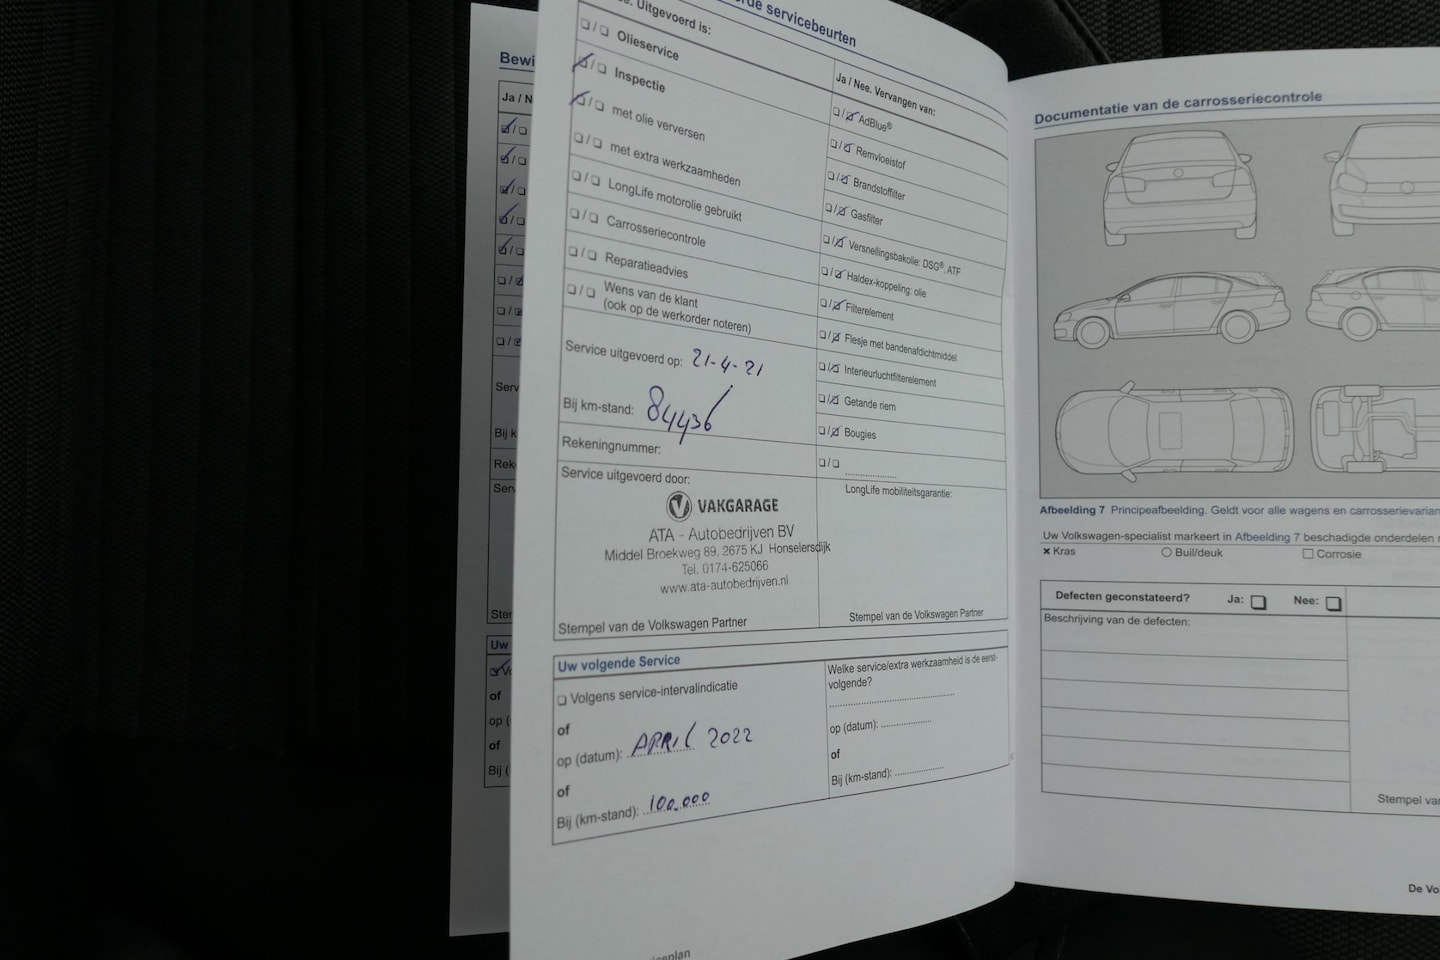 Bewi
Ja / N
Serv
Bij k
Rek
Serv
Ster
Uw
of
op (
of
Bij (
servicebeurten
Uitgevoerd is:
Olieservice
Inspectie
met olie verversen
met extra werkzaamheden
LongLife motorolie gebruikt
Carrosseriecontrole
Reparatieadvies
Wens van de klant
(ook op de werkorder noteren)
Service uitgevoerd op: 21-4-21
Bij km-stand: 84436
Rekeningnummer:
Service uitgevoerd door:
VAKGARAGE
ATA - Autobedrijven BV
Middel Broekweg 89, 2675 KJ Honselersdijk
Tel. 0174-625066
www.ata-autobedrijven.nl
Stempel van de Volkswagen Partner
Ja / Nee. Vervangen van:
AdBlue®
Remvloeistof
Brandstoffilter
Gasfilter
Versnellingsbakolie: DSG®, ATF
Haldex-koppeling: olie
Filterelement
Flesje met bandenafdichtmiddel
Interieurluchtfilterelement
Getande riem
Bougies
LongLife mobiliteitsgarantie:
Stempel van de Volkswagen Partner
Uw volgende Service
Volgens service-intervalindicatie
of
op (datum): APRIL 2022
of
Bij (km-stand): 100.000
Welke service/extra werkzaamheid is de eerst-
volgende?
op (datum):
of
Bij (km-stand):
Documentatie van de carrosseriecontrole
Afbeelding 7 Principeafbeelding. Geldt voor alle wagens en carrosserievarian
Uw Volkswagen-specialist markeert in Afbeelding 7 beschadigde onderdelen
Kras
Buil/deuk
Corrosie
Defecten geconstateerd? Ja: Nee:
Beschrijving van de defecten:
Stempel va
De Vo